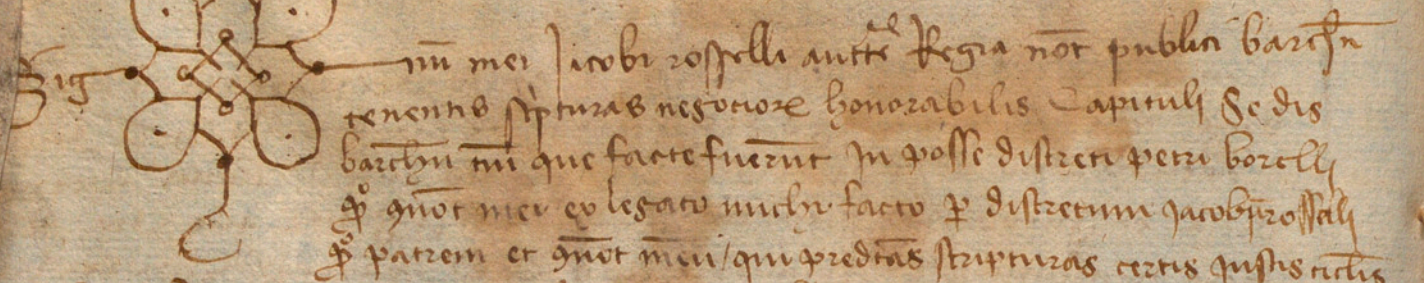 Sig num mei Jacobi rosselli auctte Regia not publici barchn
tenentis scripturas negociorum honorabilis Capituli Sedis
barchn tm que facte fuerunt In posse discreti petri borrelli
qo cōnot mei ex legato michi facto per discretum Jacobum rosselli
qo patrem et cōnot meum / qui predtas scripturas certis Justis titlis